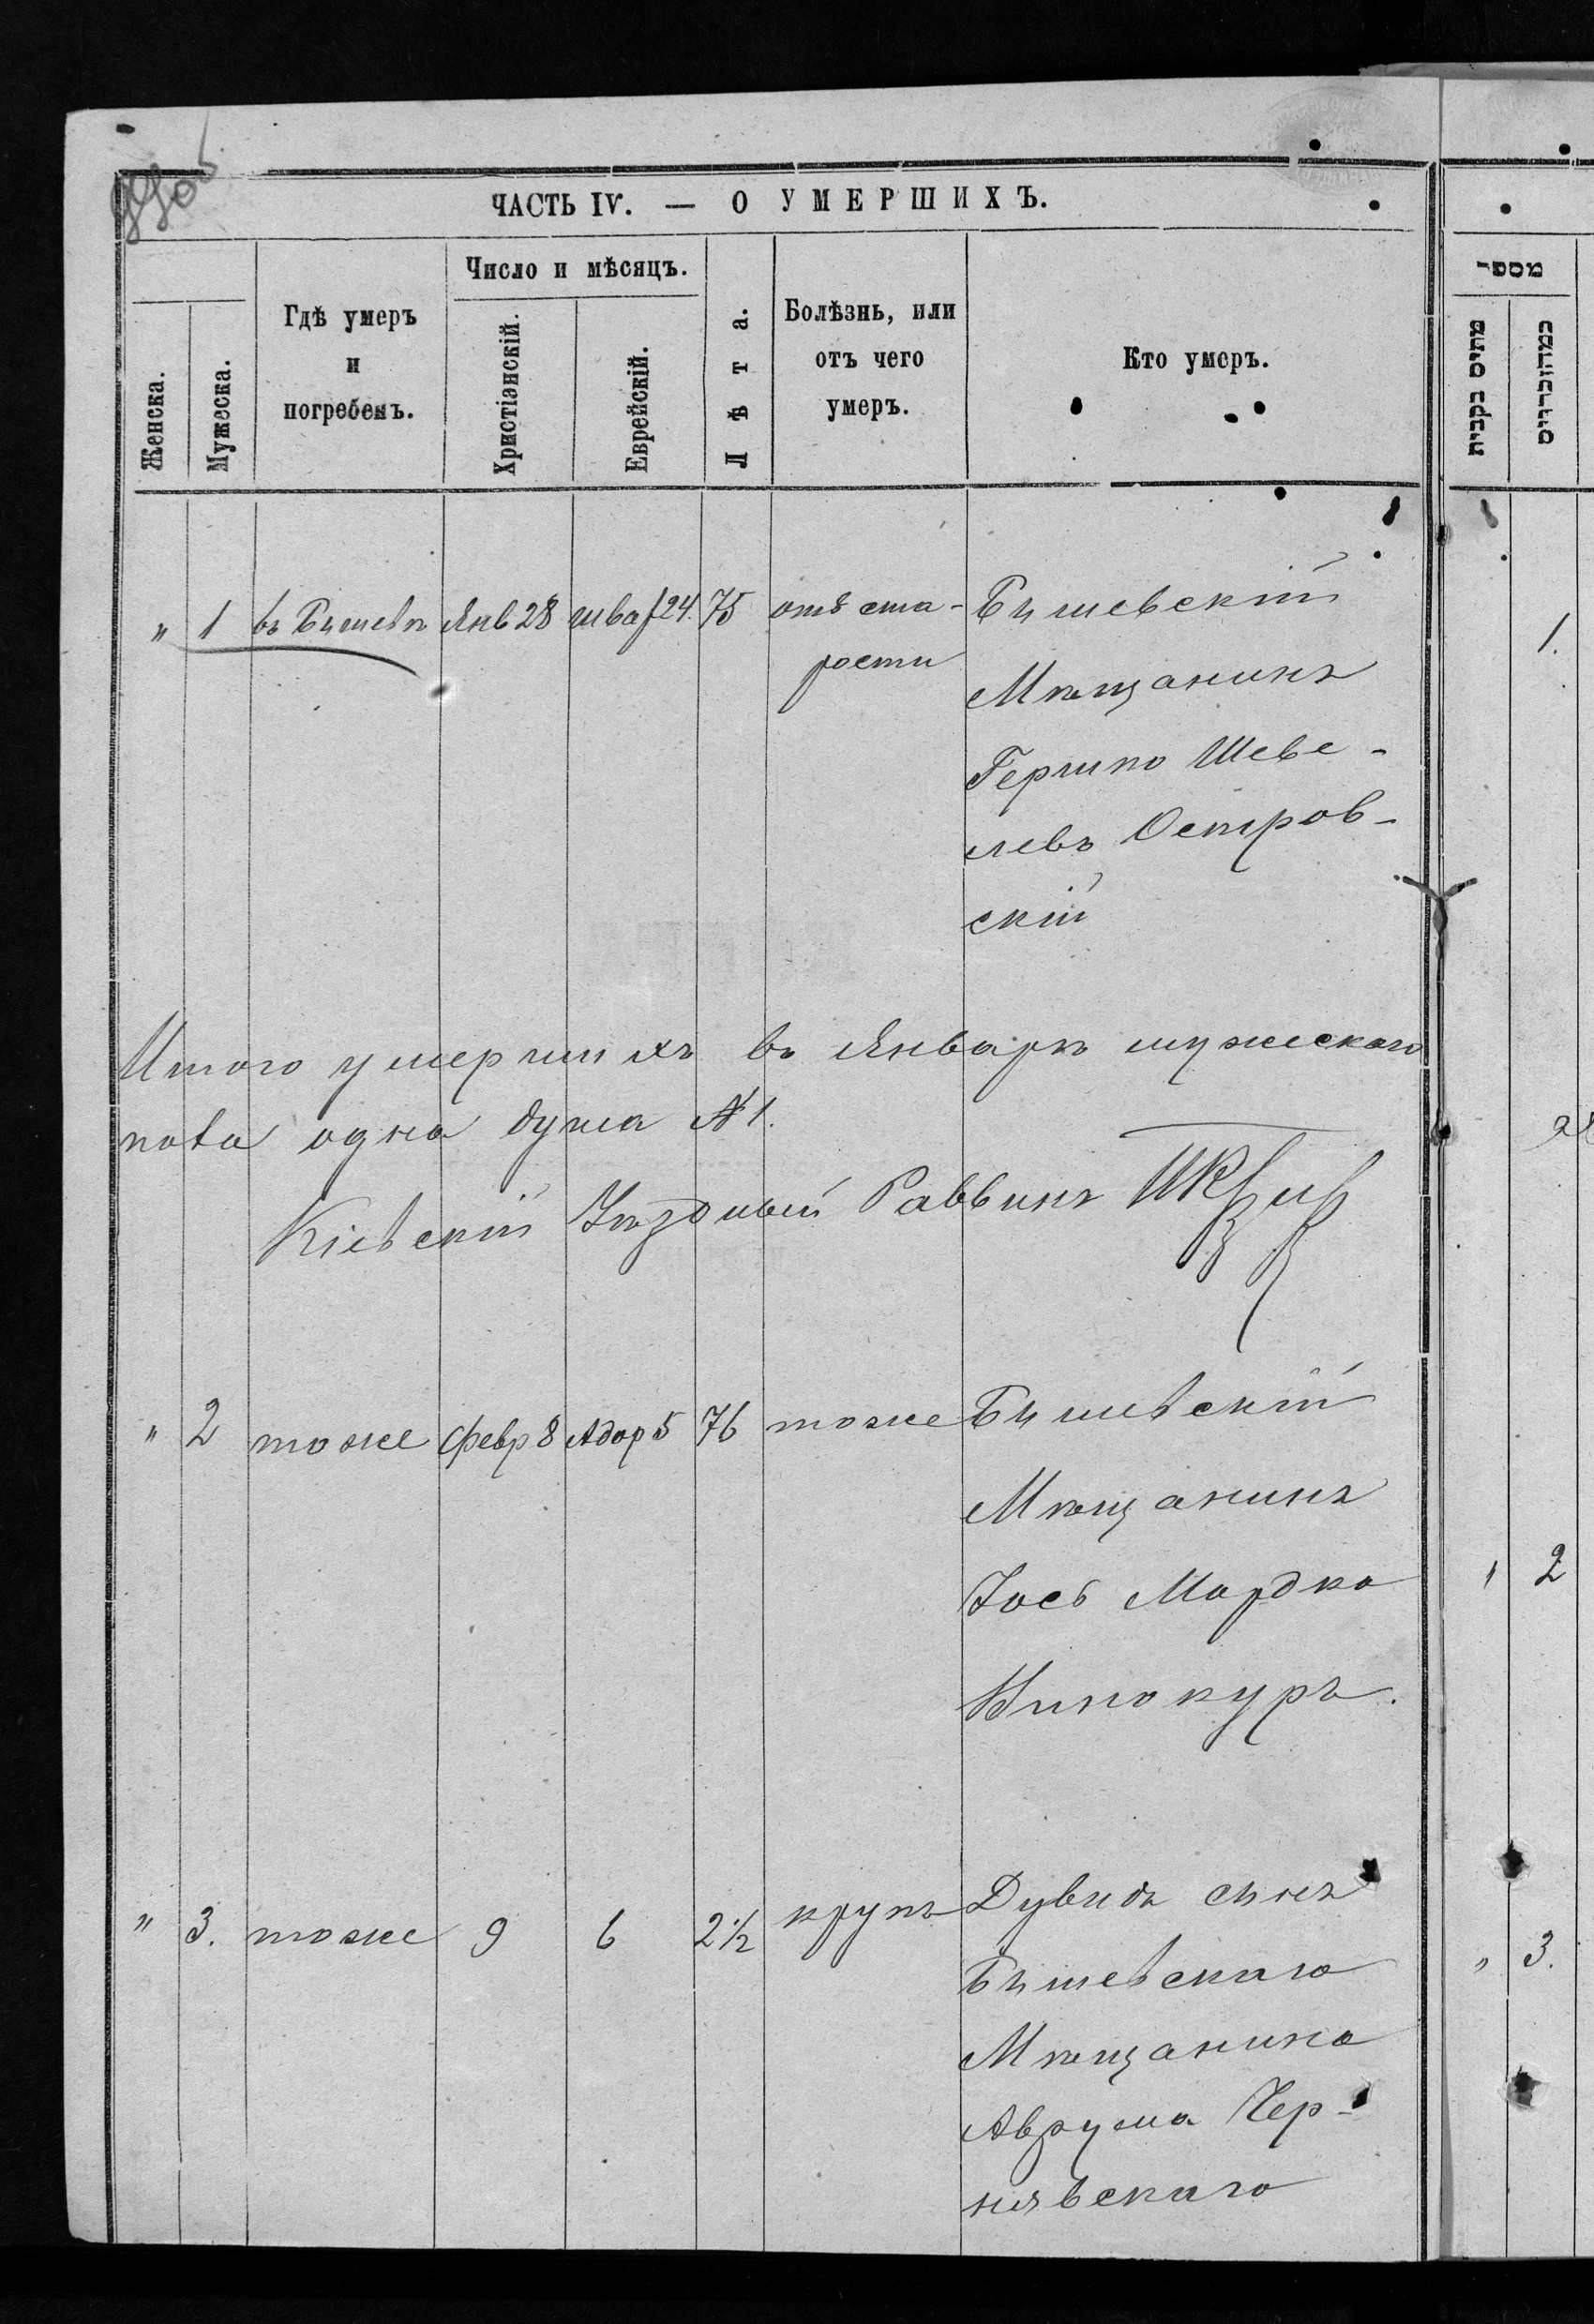 ЧАСТЬ IV. — О УМЕРШИХЪ.
Женска.
Мужеска.
Гдѣ умеръ
и
погребенъ.
Число и мѣсяцъ.
Христіанскій.
Еврейскій.
Лѣта.
Болѣзнь, или
отъ чего
умеръ.
Кто умеръ.
" 1 въ Бышевѣ Янв 28 шват 24. 75 отъ ста- Бышевскій
рости Мѣщанинъ
Гершко Шеве-
левъ Островскій
скій
Итого умершихъ въ Январѣ мужескаго
пола одна душа №1.
Кіевскій Уѣздный Раввинъ
" 2 тоже Февр 8 Адар 5 76 тоже Бышевскій
Мѣщанинъ
Іось Мордко
Винокуръ.
" 3. тоже 9 6 2½ крупъ Дувидъ сынъ
Бышевскаго
Мѣщанина
Аврума Чер-
нявскаго
מספר
מתים
נקבות
1.
" 2
" 3.